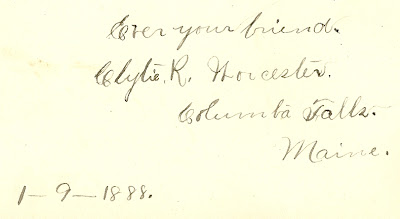 Ever your friend.
Clytie. R. Worcester.
Columba Falls.
Maine.
1-9-1888.